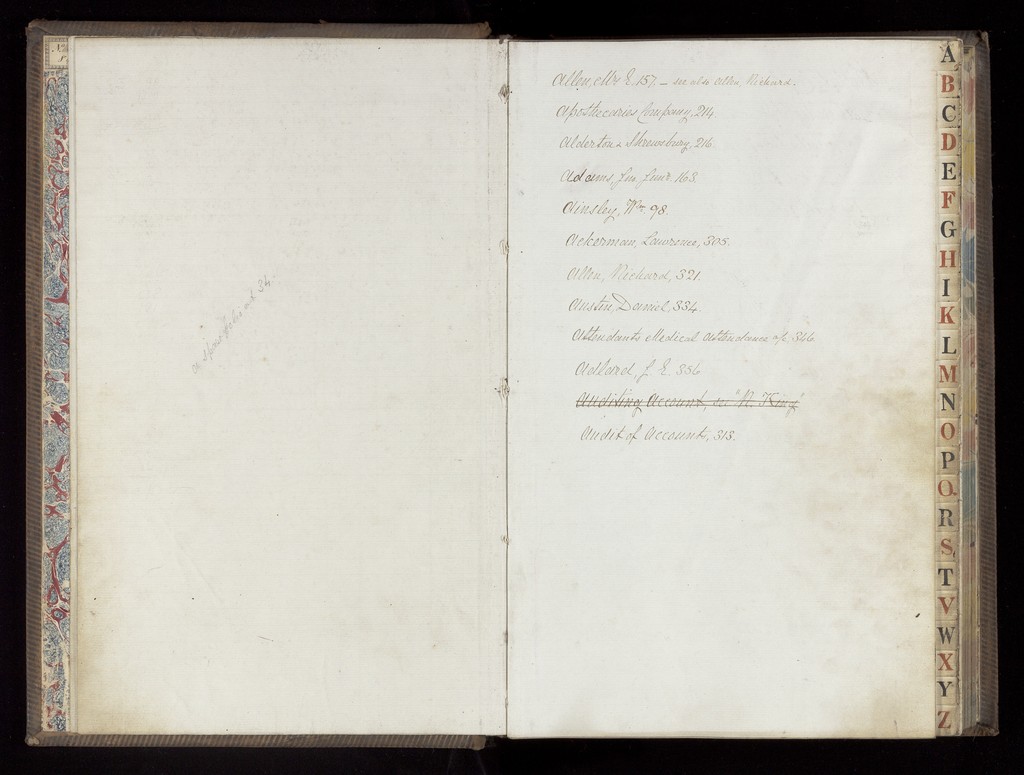 Allen, Mrs E. 157, – see also Allen, Richard.
Apothecaries Company, 214.
Alderton & Shrewsbury, 216.
Adams, Jno. Junr. 163.
Ainsley, Wm. 98.
Ackerman, Lawrence, 305.
Allen, Richard, 321.
Austin, Daniel, 334.
Attendants Medical Attendance of, 346.
Adlard, J. E. 356
Auditing Account, see "N. King"
Audit of Accounts, 313.
A
B
C
D
E
F
G
H
I
K
L
M
N
O
P
Q.
R
S
T
V
W
X
Y
Z